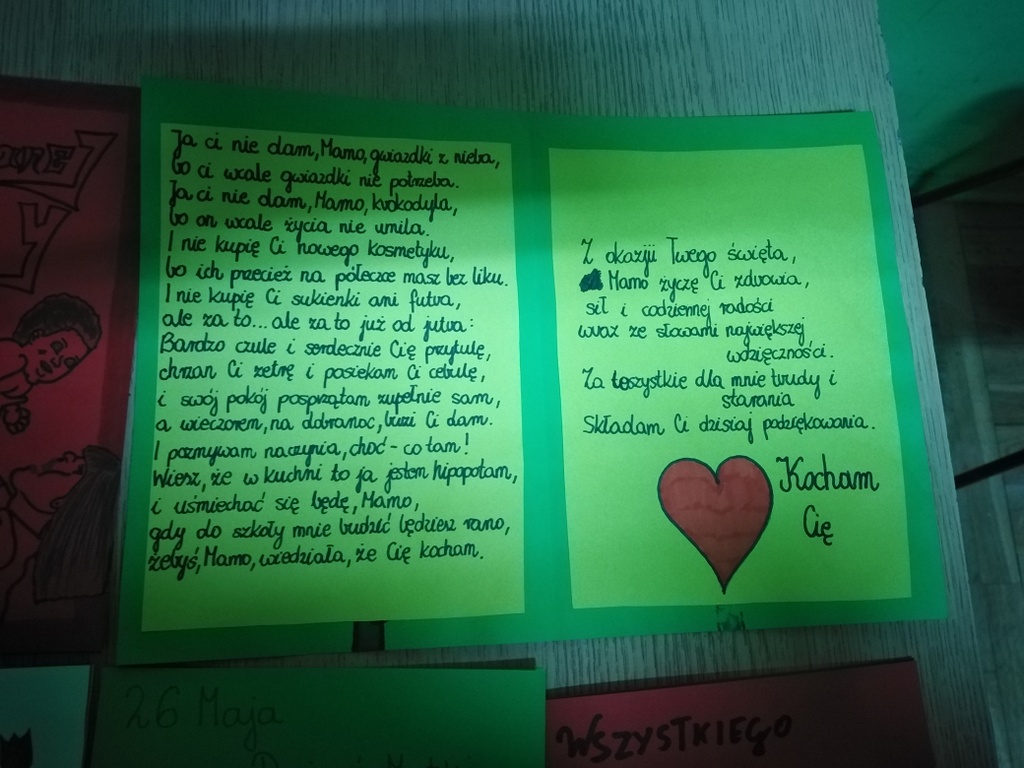 Ja ci nie dam, Mamo, gwiazdki z nieba,
bo ci wcale gwiazdki nie potrzeba.
Ja ci nie dam, Mamo, krokodyla,
bo on wcale życia nie umila.
I nie kupię Ci nowego kosmetyku,
bo ich przecież na półeczce masz bez liku.
I nie kupię Ci sukienki ani futra,
ale za to... ale za to już od jutra:
Bardzo czule i serdecznie Cię przytulę,
chrzan Ci zetrę i posiekam Ci cebulę,
i swój pokój posprzątam zupełnie sam,
a wieczorem, na dobranoc, buzi Ci dam.
I pozmywam naczynia, choć - co tam!
Wiesz, że w kuchni to ja jestem hipopotam,
i uśmiechać się będę, Mamo,
gdy do szkoły mnie budzić będziesz rano,
żebyś, Mamo, wiedziała, że Cię kocham.
Z okazji Twego święta,
Mamo życzę Ci zdrowia,
sił i codziennej radości
wraz ze słowami największej
wdzięczności.
Za wszystkie dla mnie trudy i
starania
Składam Ci dzisiaj podziękowania.
Kocham
Cię
26 Maja
WSZYSTKIEGO